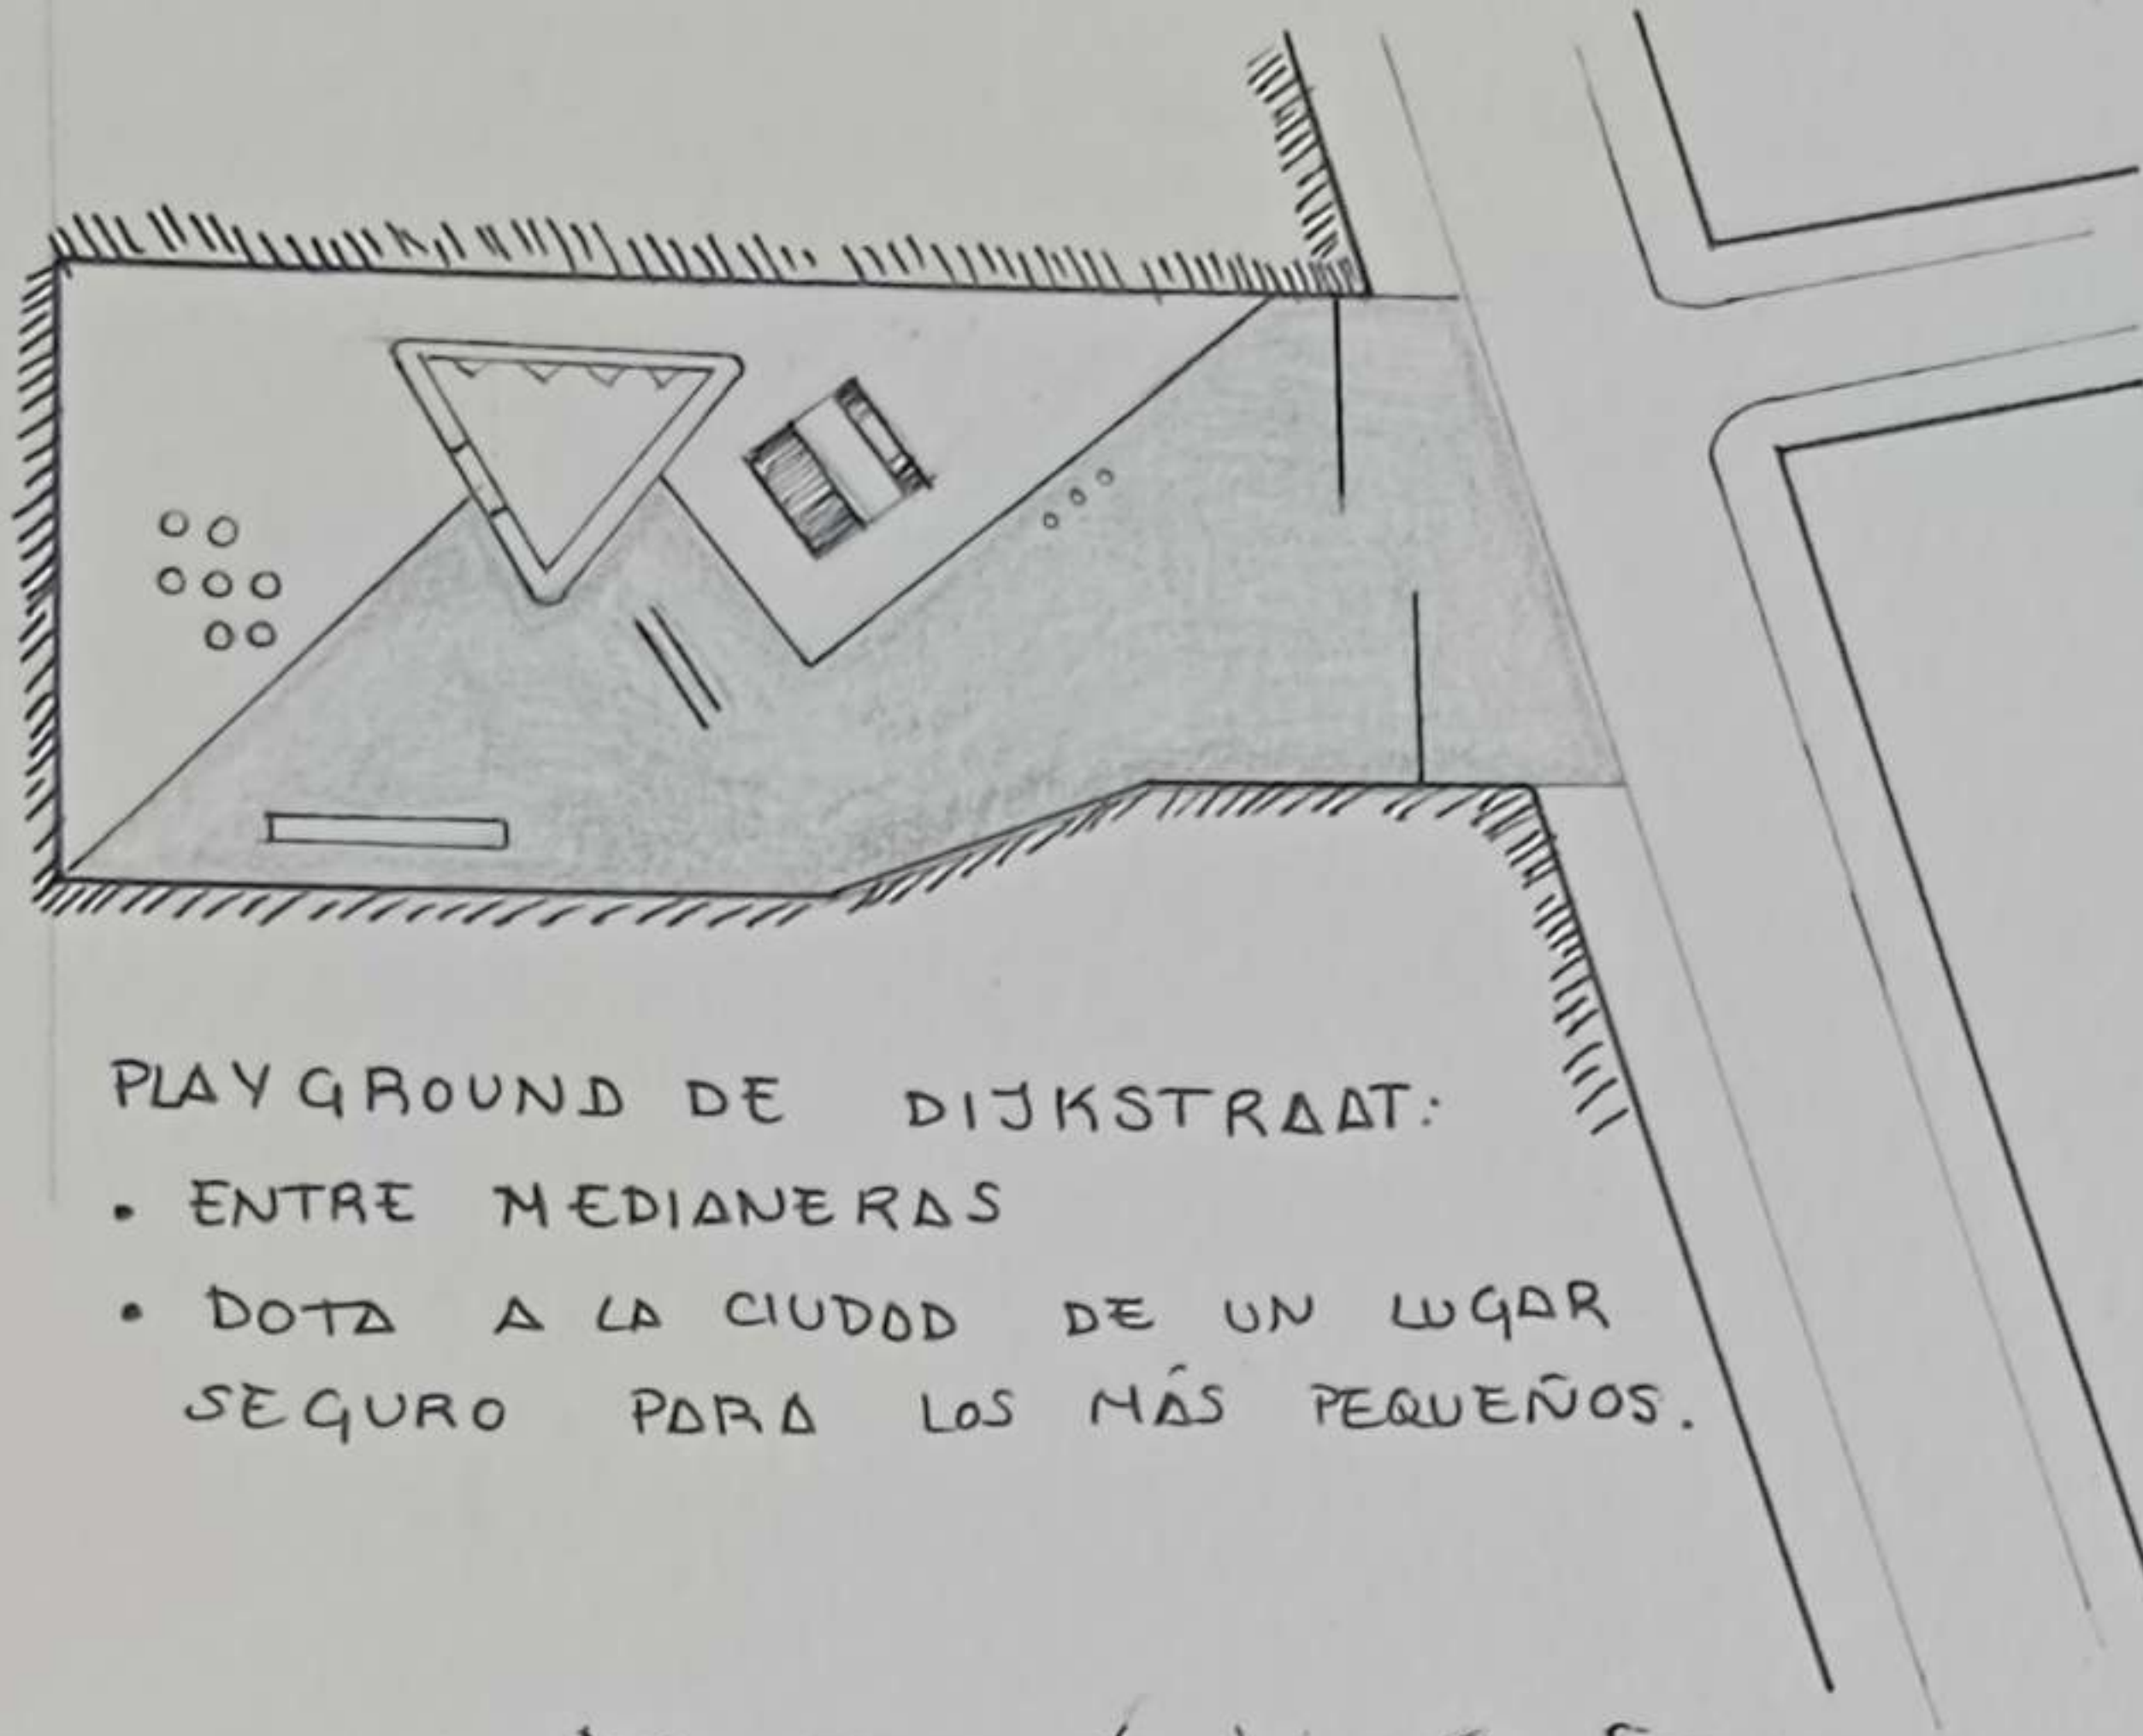 PLAYGROUND DE DIJKSTRAAT:
• ENTRE MEDIANERAS
• DOTA A LA CIUDAD DE UN LUGAR
SEGURO PARA LOS MÁS PEQUEÑOS.